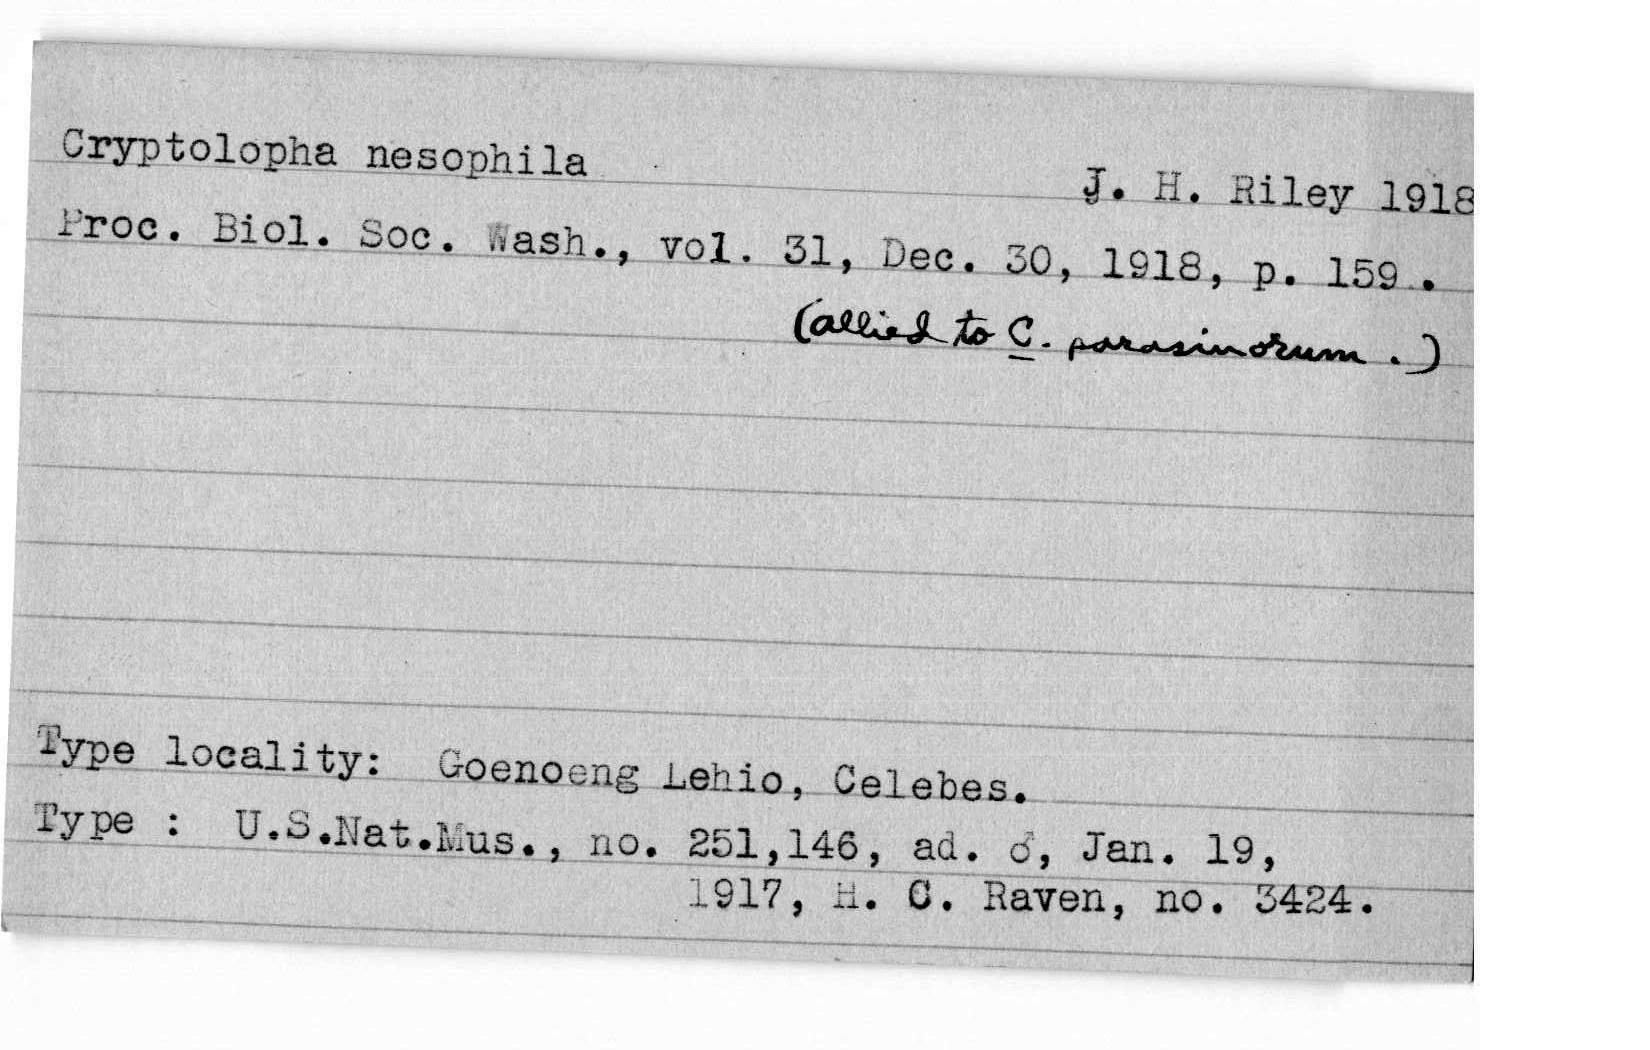 Cryptolopha nesophila J. H. Riley 1918
Proc. Biol. Soc. Wash., vol. 31, Dec. 30, 1918, p. 159.
(allied to C. parasinorum.)
Type locality: Goenoeng Lehio, Celebes.
Type : U.S.Nat.Mus., no. 251,146, ad. ♂, Jan. 19,
1917, H. C. Raven, no. 3424.